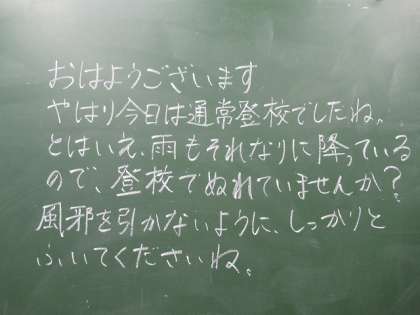 おはようございます
やはり今日は通常登校でしたね。
とはいえ、雨もそれなりに降っている
ので、登校でぬれていませんか?
風邪を引かないように、しっかりと
ふいてくださいね。